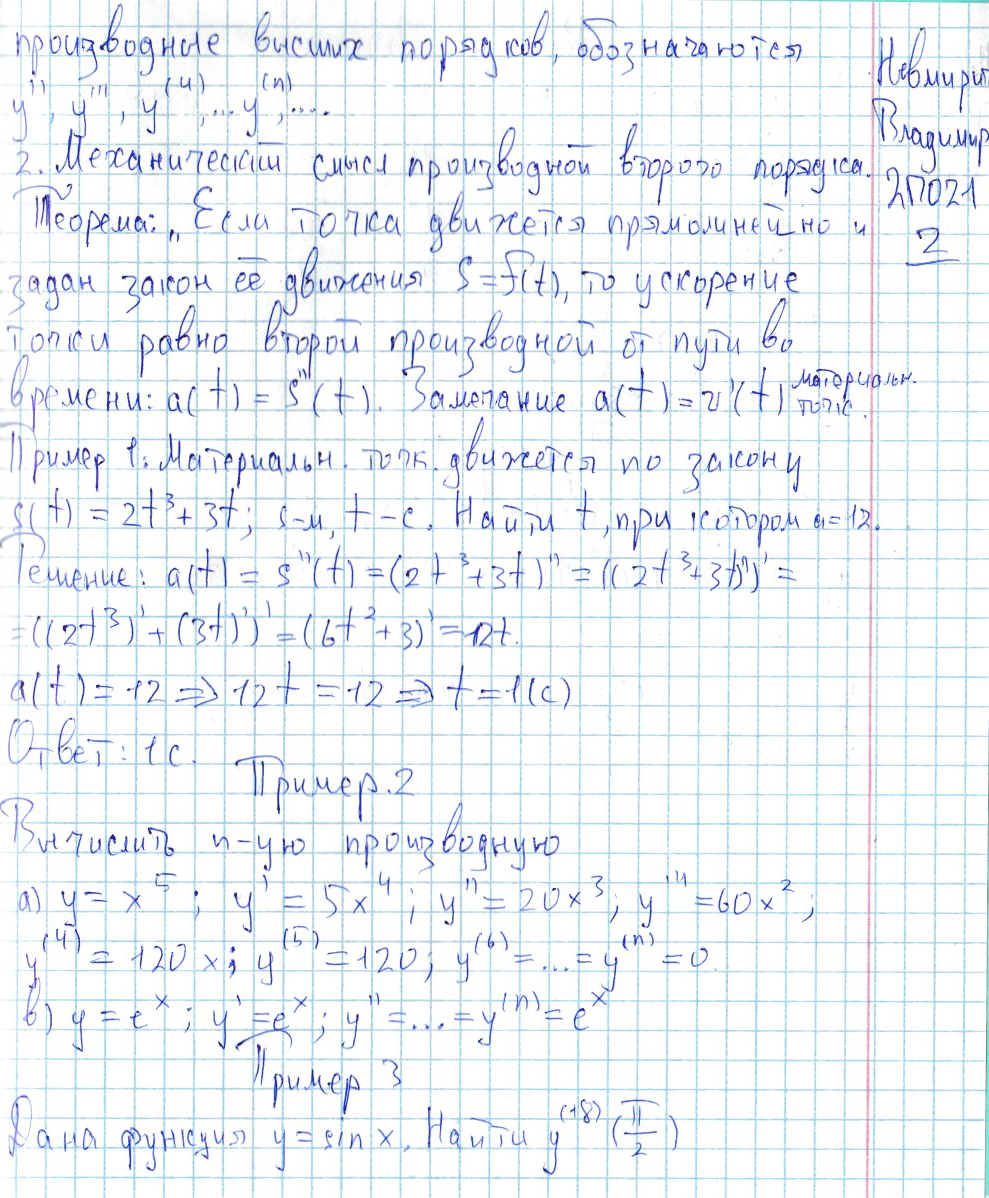 производные высших порядков, обозначаются
y'', y''', y⁽⁴⁾, ... y⁽ⁿ⁾, ....
2. Механический смысл производной второго порядка.
Теорема: „Если точка движется прямолинейно и
задан закон её движения S = f(t), то ускорение
точки равно второй производной от пути во
времени: a(t) = S''(t). Замечание a(t) = v'(t) материальн.
точк.
Пример 1: Материальн. точк. движется по закону
s(t) = 2t³ + 3t; s-м, t-с. Найти t, при котором a = 12.
Решение: a(t) = s''(t) = (2t³ + 3t)'' = ((2t³ + 3t)')' =
= ((2t³)' + (3t)')' = (6t² + 3)' = 12t.
a(t) = 12 => 12t = 12 => t = 1(c)
Ответ: 1 с.
Пример. 2
Вычислить n-ую производную
а) y = x⁵; y' = 5x⁴; y'' = 20x³; y''' = 60x²;
y⁽⁴⁾ = 120x; y⁽⁵⁾ = 120; y⁽⁶⁾ = ... = y⁽ⁿ⁾ = 0.
в) y = eˣ; y' = eˣ; y'' = ... = y⁽ⁿ⁾ = eˣ
Пример 3
Дана функция y = sin x. Найти y⁽¹⁸⁾(π/2)
Невмирит
Владимир
2П021
2